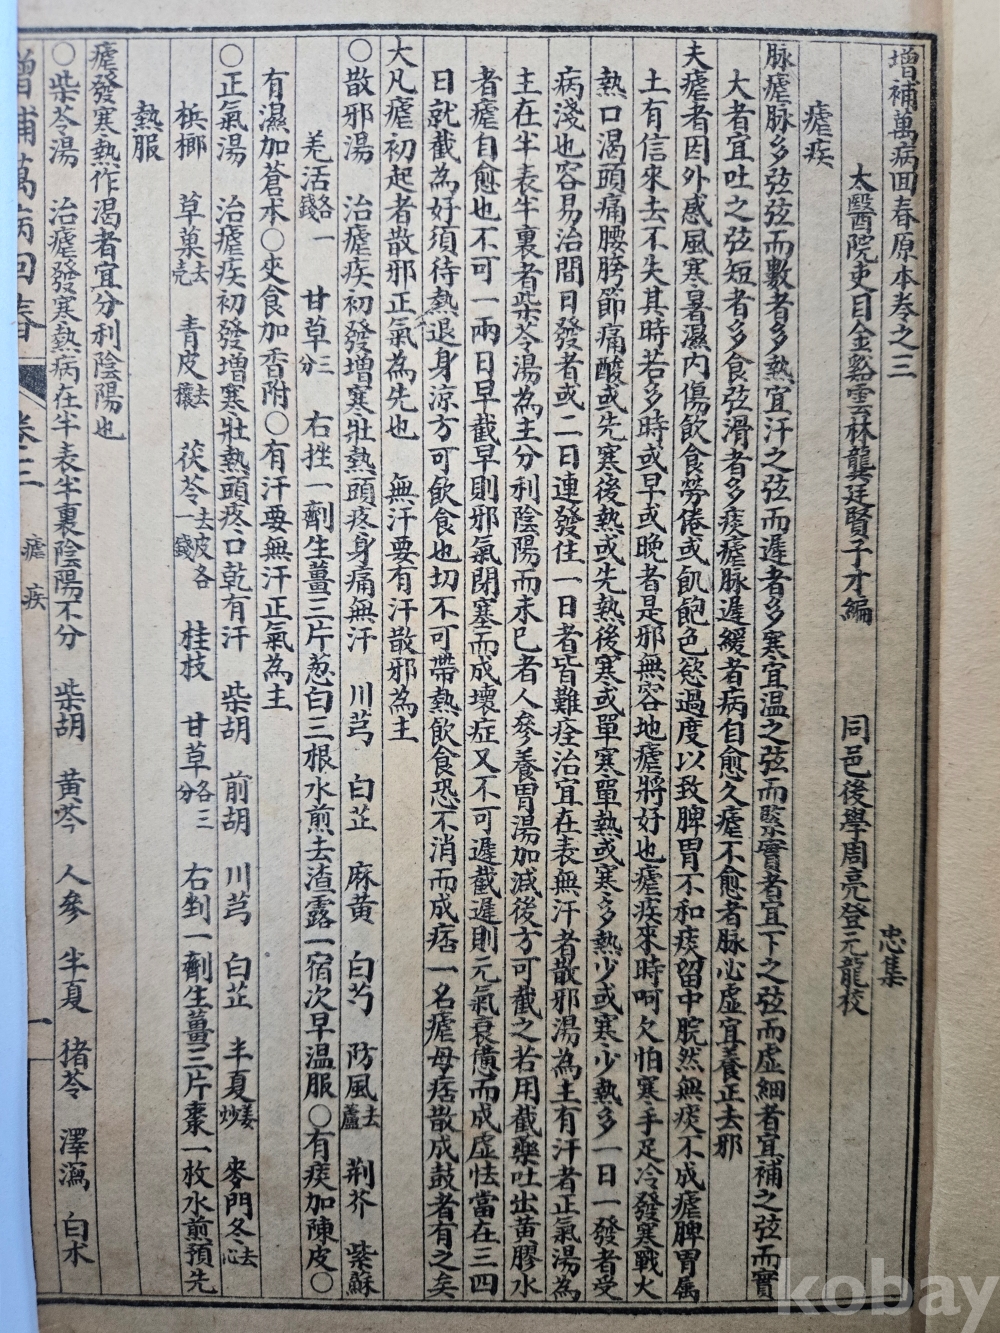 增補萬病回春原本卷之三　忠集
太醫院吏目金谿雲林龔廷賢子才編　同邑後學周亮登元龍校
瘧疾
脉瘧脉多弦弦而數者多熱宜汗之弦而遲者多寒宜溫之弦而緊實者宜下之弦而虛細者宜補之弦而實
大者宜吐之弦短者多食弦滑者多痰瘧脉遲緩者病自愈久瘧不愈者脉必虛宜養正去邪
夫瘧者因外感風寒暑濕內傷飲食勞倦或飢飽色慾過度以致脾胃不和痰留中脘然無痰不成瘧脾胃属
土有信來去不失其時若多時或早或晚者是邪無容地瘧將好也瘧疾來時呵欠怕寒手足冷發寒戰大
熱口渴頭痛腰胯節痛酸或先寒後熱或先熱後寒或單寒單熱或寒多熱少或寒少熱多一日一發者受
病淺也容易治間日發者或二日連發住一日者皆難痊治宜在表無汗者散邪湯為主有汗者正氣湯為
主在半表半裏者柴苓湯為主分利陰陽而未已者人參養胃湯加減後方可截之若用截藥吐出黃膠水
者瘧自愈也不可一兩日早截早則邪氣閉塞而成壞症又不可遲截遲則元氣衰憊而成虛怯當在三四
日就截為好須待熱退身涼方可飲食也切不可帶熱飲食恐不消而成痞一名瘧母痞散成鼓者有之矣
大凡瘧初起者散邪正氣為先也　無汗要有汗散邪為主
○散邪湯　治瘧疾初發增寒壯熱頭疼身痛無汗　川芎　白芷　麻黃　白芍　防風去蘆　荆芥　紫蘇
羌活各一錢　甘草三分　右挫一劑生薑三片葱白三根水煎去渣露一宿次早温服○有痰加陳皮○
有濕加蒼朮○夾食加香附○有汗要無汗正氣為主
○正氣湯　治瘧疾初發增寒壯熱頭疼口乾有汗　柴胡　前胡　川芎　白芷　半夏姜炒　麥門冬去心
梹榔　草菓去壳　青皮去穰　茯苓去皮各一錢　桂枝　甘草各三分　右剉一劑生薑三片棗一枚水煎預先
熱服
瘧發寒熱作渴者宜分利陰陽也
○柴苓湯　治瘧發寒熱病在半表半裏陰陽不分　柴胡　黃芩　人參　半夏　猪苓　澤瀉　白朮
增補萬病回春　卷三　瘧疾　一
kobay